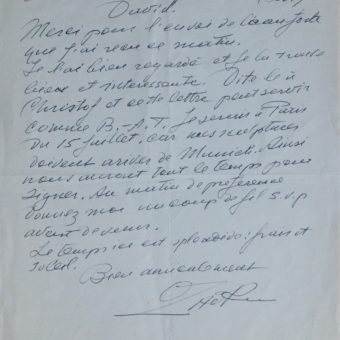 David.
Merci pour l'envoi de l'eau forte
que j'ai reçu ce matin.
Je l'ai bien regardé et je la trouve
belle et intéressante. Dite le à
Christof et cette lettre peut servir
comme B.-A.T. Je serai à Paris
du 15 juillet, car mes sculptures
doivent arriver de Munich. Ainsi
nous aurons tout le temps pour
signer. Au matin de préférence
donnez moi un coup de fil s.v.p
avant de venir.
Le temps ici est splendide: frais et
soleil.
Bien amicalement